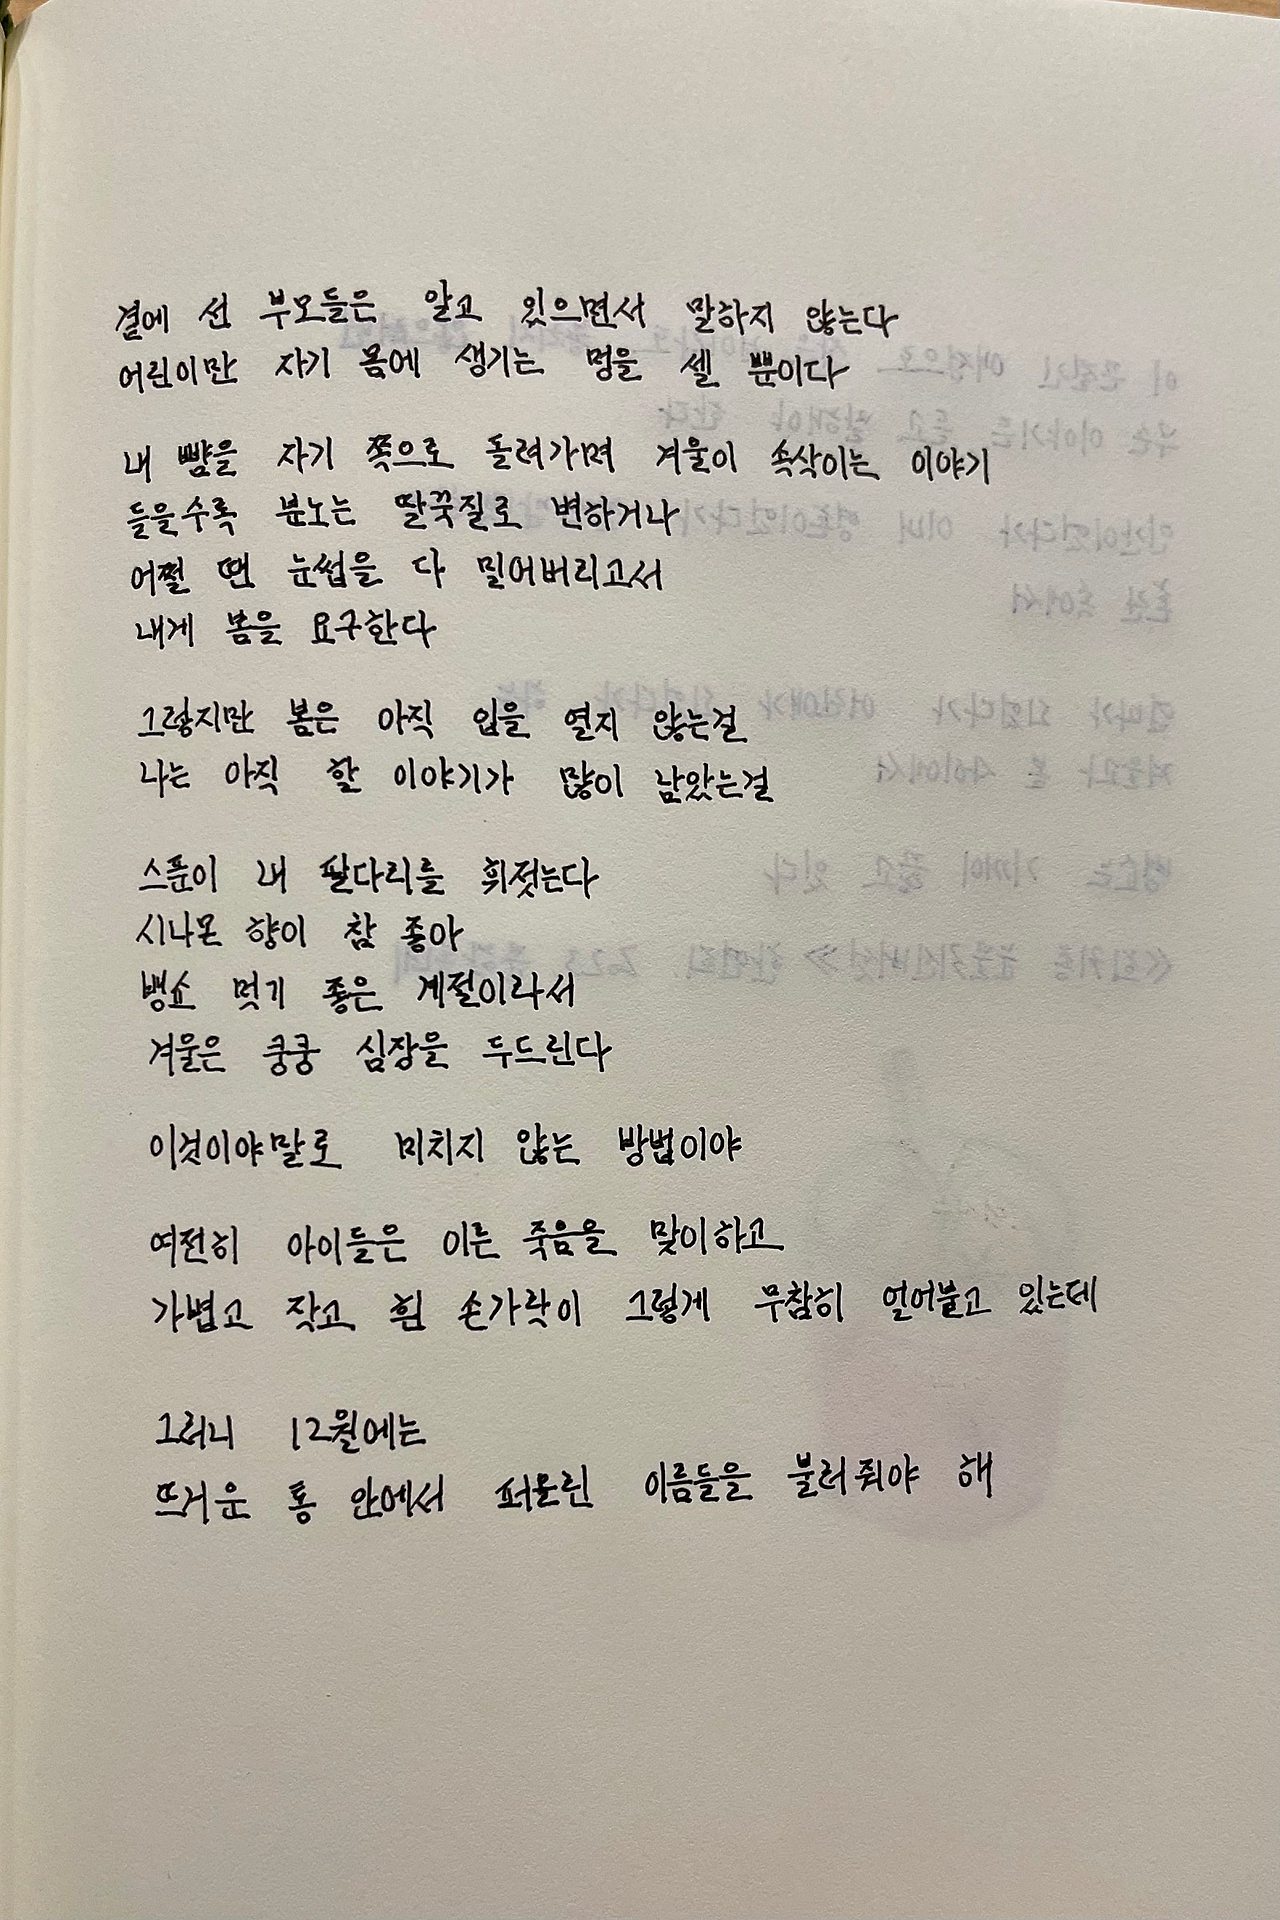 곁에 선 부모들은 알고 있으면서 말하지 않는다
어린이만 자기 몸에 생기는 멍을 셀 뿐이다
내 뺨을 자기 쪽으로 돌려가며 겨울이 속삭이는 이야기
들을수록 분노는 딸꾹질로 변하거나
어쩔 땐 눈썹을 다 밀어버리고서
내게 봄을 요구한다
그렇지만 봄은 아직 입을 열지 않는걸
나는 아직 할 이야기가 많이 남았는걸
스푼이 내 팔다리를 휘젓는다
시나몬 향이 참 좋아
뱅쇼 먹기 좋은 계절이라서
겨울은 쿵쿵 심장을 두드린다
이것이야말로 미치지 않는 방법이야
여전히 아이들은 이른 죽음을 맞이하고
가볍고 작고 흰 손가락이 그렇게 무참히 얼어붙고 있는데
그러니 12월에는
뜨거운 통 안에서 퍼올린 이름들을 불러줘야 해